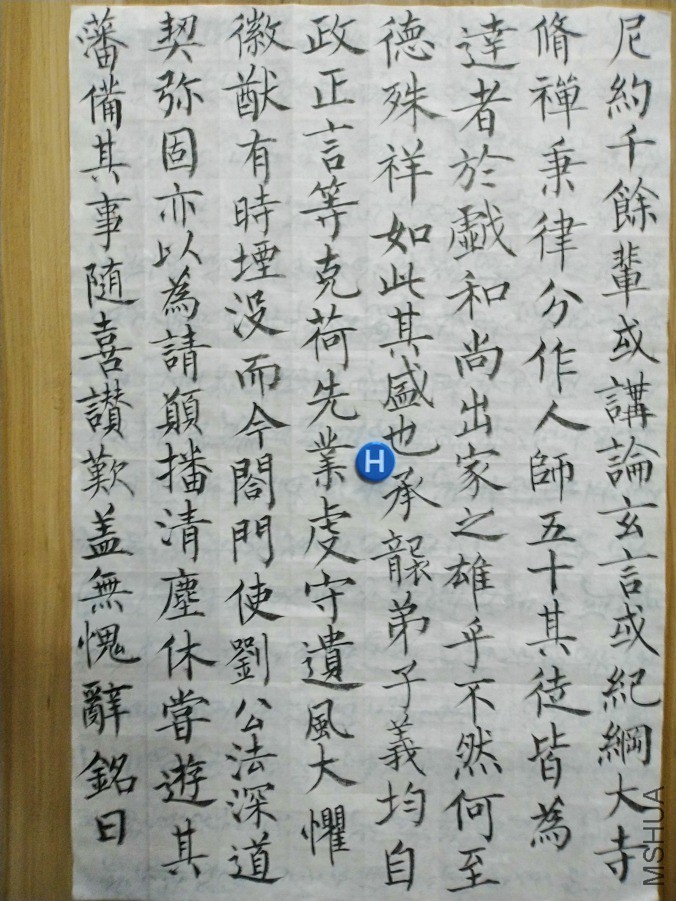 尼約千餘輩或講論玄言或紀綱大寺
脩禪秉律分作人師五十其徒皆為
達者於戯和尚出家之雄乎不然何至
德殊祥如此其盛也承襲弟子義均自
政正言等克荷先業虔守遺風大懼
徽猷有時堙没而今閤門使劉公法深道
契弥固亦以為請願播清塵休嘗遊其
藩備其事随喜讃歎盖無愧辭銘曰
H
MSHUA